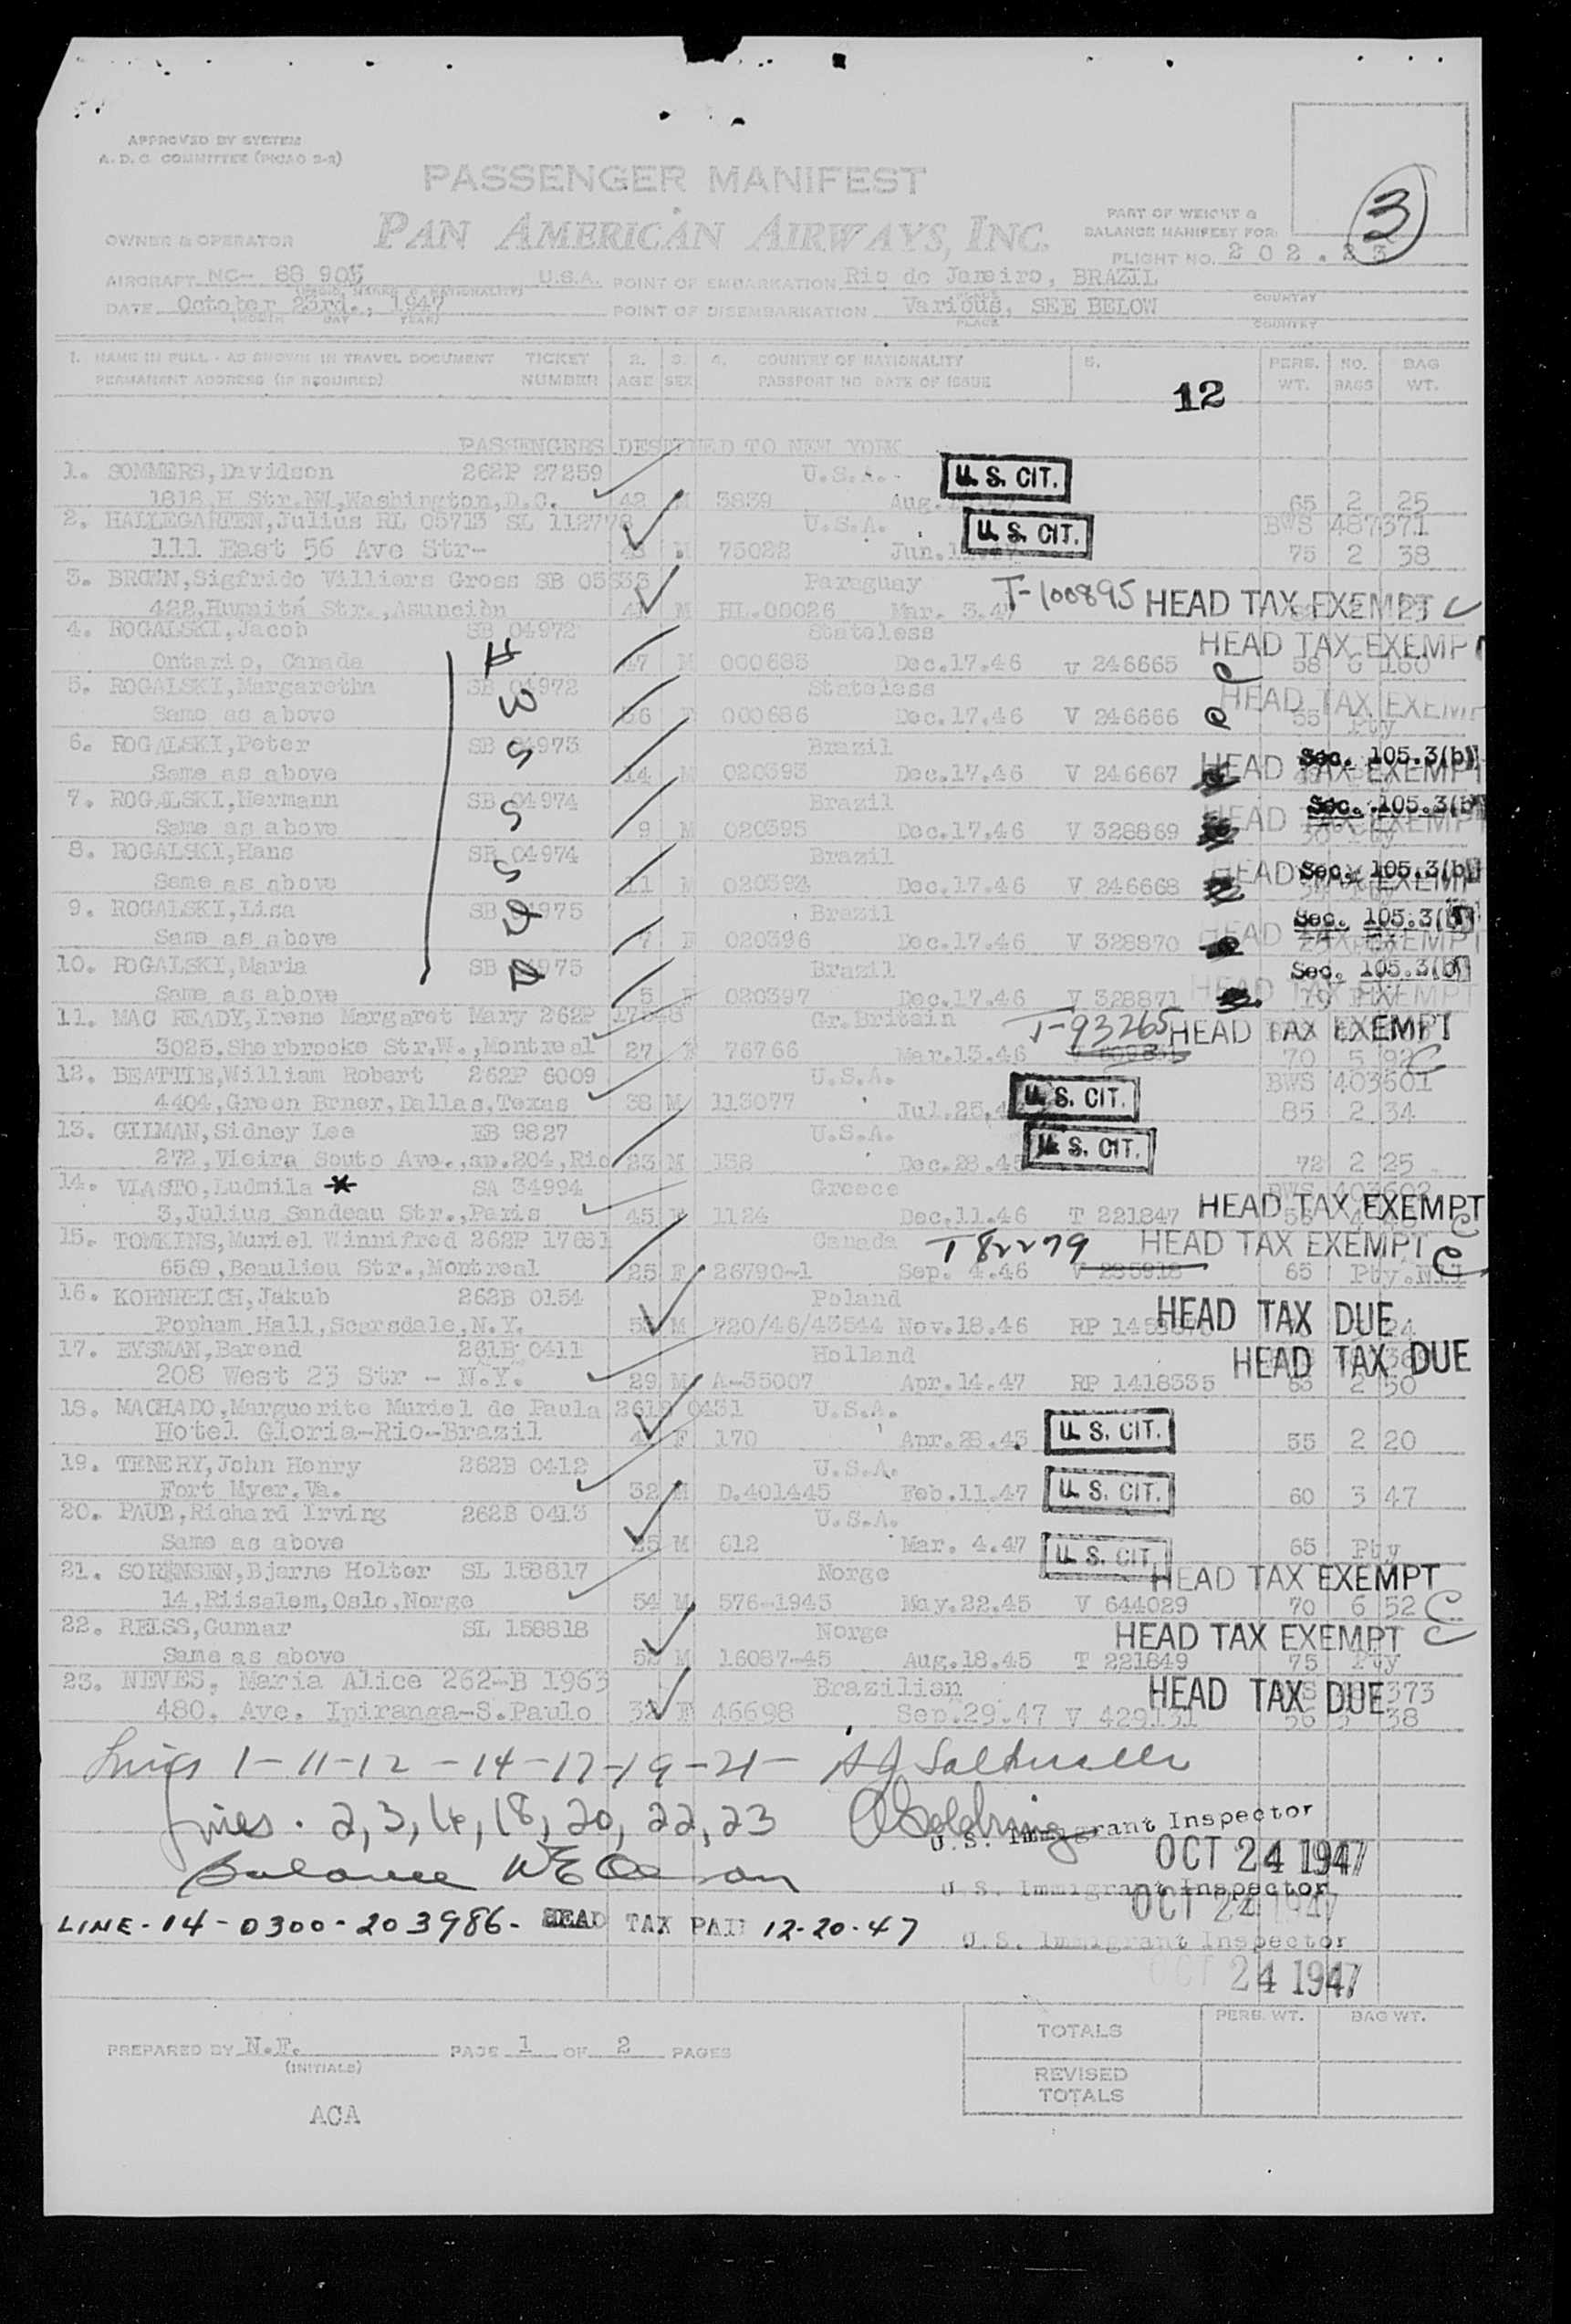 APPROVED BY SYSTEM
A. D. C. COMMITTEE (PICAO 2-2)
PASSENGER MANIFEST
3
OWNER & OPERATOR PAN AMERICAN AIRWAYS, INC.
PART OF WEIGHT &
BALANCE MANIFEST FOR:
FLIGHT NO. 202.23
AIRCRAFT NC- 88 905 U.S.A. POINT OF EMBARKATION Rio de Janeiro, BRAZIL
DATE October 23rd., 1947 POINT OF DISEMBARKATION Various, SEE BELOW
(MONTH DAY YEAR) PLACE COUNTRY
1. NAME IN FULL - AS SHOWN IN TRAVEL DOCUMENT TICKET 2. 3. 4. COUNTRY OF NATIONALITY 5. PERS. NO. BAG
PERMANENT ADDRESS (IF REQUIRED) NUMBER AGE SEX PASSPORT NO DATE OF ISSUE WT. BAGS WT.
12
PASSENGERS DESTINED TO NEW YORK
1. SOMMERS, Davidson 262P 27259 U.S.A. U. S. CIT.
1818, H Str. NW, Washington, D.C. 42 M 3839 Aug. 65 2 25
2. HALLEGARTEN, Julius RL 05713 SL 112778 U.S.A. U. S. CIT. BWS 487371
111 East 56 Ave Str- M 75022 Jun. 75 2 38
3. BROWN, Sigfrido Villiers Gross SB 05635 Paraguay T-100895 HEAD TAX EXEMPT
422, Humaitá Str., Asunción M HI.00026 Mar. 3.47
4. ROGALSKI, Jacob SB 04972 Stateless HEAD TAX EXEMPT
Ontario, Canada 47 M 000685 Dec.17.46 V 246665 58 6 160
5. ROGALSKI, Margaretha SB 04972 Stateless HEAD TAX EXEMPT
Same as above 36 F 000686 Dec.17.46 V 246666 55 Pty
6. ROGALSKI, Peter SB 04973 Brazil Sec. 105.3(b)
Same as above 14 M 020393 Dec.17.46 V 246667 HEAD TAX EXEMPT
7. ROGALSKI, Hermann SB 04974 Brazil Sec. 105.3(b)
Same as above 9 M 020395 Dec.17.46 V 328869 HEAD TAX EXEMPT
8. ROGALSKI, Hans SB 04974 Brazil Sec. 105.3(b)
Same as above 11 020394 Dec.17.46 V 246668 HEAD TAX EXEMPT
9. ROGALSKI, Lisa SB 04975 Brazil Sec. 105.3(b)
Same as above 7 F 020396 Dec.17.46 V 328870 HEAD TAX EXEMPT
10. ROGALSKI, Maria SB 04975 Brazil Sec. 105.3(b)
Same as above 5 F 020397 Dec.17.46 V 328871 HEAD TAX EXEMPT
11. MAC READY, Irene Margaret Mary 262P Gr.Britain T-93265 HEAD TAX EXEMPT
3025. Sherbrooke Str.W., Montreal 27 F 76766 Mar.13.46 70 5 92
12. BEATTIE, William Robert 262P 6009 U.S.A. U. S. CIT. BWS 403601
4404, Green Brner, Dallas, Texas 38 M 113077 Jul.25,4 85 2 34
13. GILMAN, Sidney Lee EB 9827 U.S.A. U. S. CIT.
272, Vieira Souto Ave., ap.204, Rio 23 M 158 Dec.28.45 72 2 25
14. VLASTO, Ludmila * SA 34994 Greece BWS 403602
3, Julius Sandeau Str., Paris 45 F 1124 Dec.11.46 T 221847 HEAD TAX EXEMPT
15. TOMKINS, Muriel Winnifred 262P 17631 Canada T 82279 HEAD TAX EXEMPT
6569, Beaulieu Str., Montreal 25 F 26790-1 Sep. 4.46 V 235918 65 Pty.Nil
16. KORNREICH, Jakub 262B 0154 Poland HEAD TAX DUE
Popham Hall, Scarsdale, N.Y. M 720/46/43544 Nov.18.46 RP 24
17. EYSMAN, Barend 261B 0411 Holland HEAD TAX DUE
208 West 23 Str - N.Y. 29 M A-35007 Apr.14.47 RP 1418335 83 2 50
18. MACHADO, Marguerite Muriel de Paula 261B 0431 U.S.A. U. S. CIT.
Hotel Gloria-Rio-Brazil F 170 Apr.28.43 55 2 20
19. TENERY, John Henry 262B 0412 U.S.A. U. S. CIT.
Fort Myer, Va. 32 M D.401445 Feb.11.47 60 3 47
20. PAUP, Richard Irving 262B 0413 U.S.A. U. S. CIT.
Same as above M 612 Mar. 4.47 65 Pty
21. SORENSEN, Bjarne Holter SL 158817 Norge HEAD TAX EXEMPT
14, Riisalem, Oslo, Norge 54 M 576-1945 May.22.45 V 644029 70 6 52
22. REISS, Gunnar SL 158818 Norge HEAD TAX EXEMPT
Same as above M 16087-45 Aug.18.45 T 221849 75 Pty
23. NEVES, Maria Alice 262-B 1963 Brazilian HEAD TAX DUE 373
480, Ave. Ipiranga-S.Paulo 32 F 46698 Sep.29.47 V 429131 56 3 38
Lines 1-11-12-14-17-19-21-
Lines. 2, 3, 16, 18, 20, 22, 23
U. S. Immigrant Inspector
OCT 24 1947
Balance
U. S. Immigrant Inspector
OCT 24 1947
LINE-14-0300-203986- HEAD TAX PAID 12-20-47
U. S. Immigrant Inspector
OCT 24 1947
PREPARED BY N.F. PAGE 1 OF 2 PAGES
(INITIALS)
ACA
PERS. WT. BAG WT.
TOTALS
REVISED
TOTALS